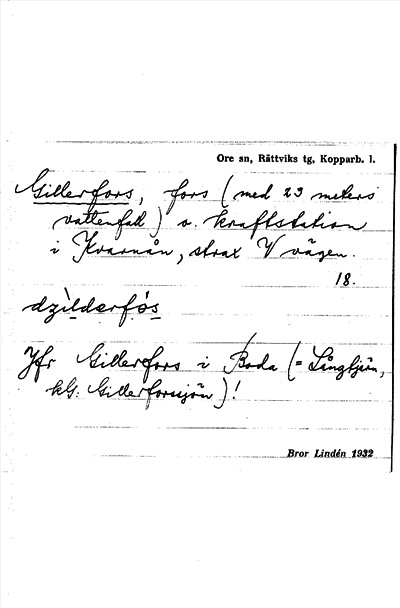 Ore sn, Rättviks tg, Kopparb. l.
Gillerfors, fors (med 23 meters
vattenfall) o. kraftstation
i Kvarnån, strax V vägen.
18.
dzìldərfòs
Jfr Gillerfors i Boda (= Långtjärn,
kG: Gillerforssjön)!
Bror Lindén 1932